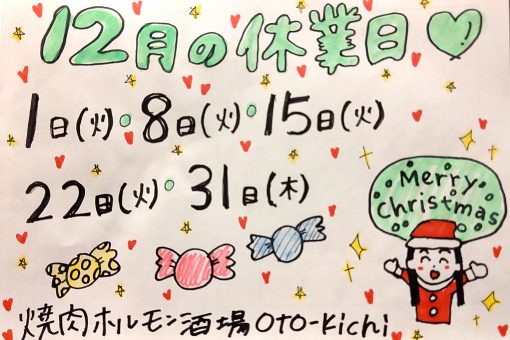 12月の休業日
1日(火)・8日(火)・15日(火)
22日(火)・31日(木)
Merry
Christmas
焼肉ホルモン酒場OTO-Kichi